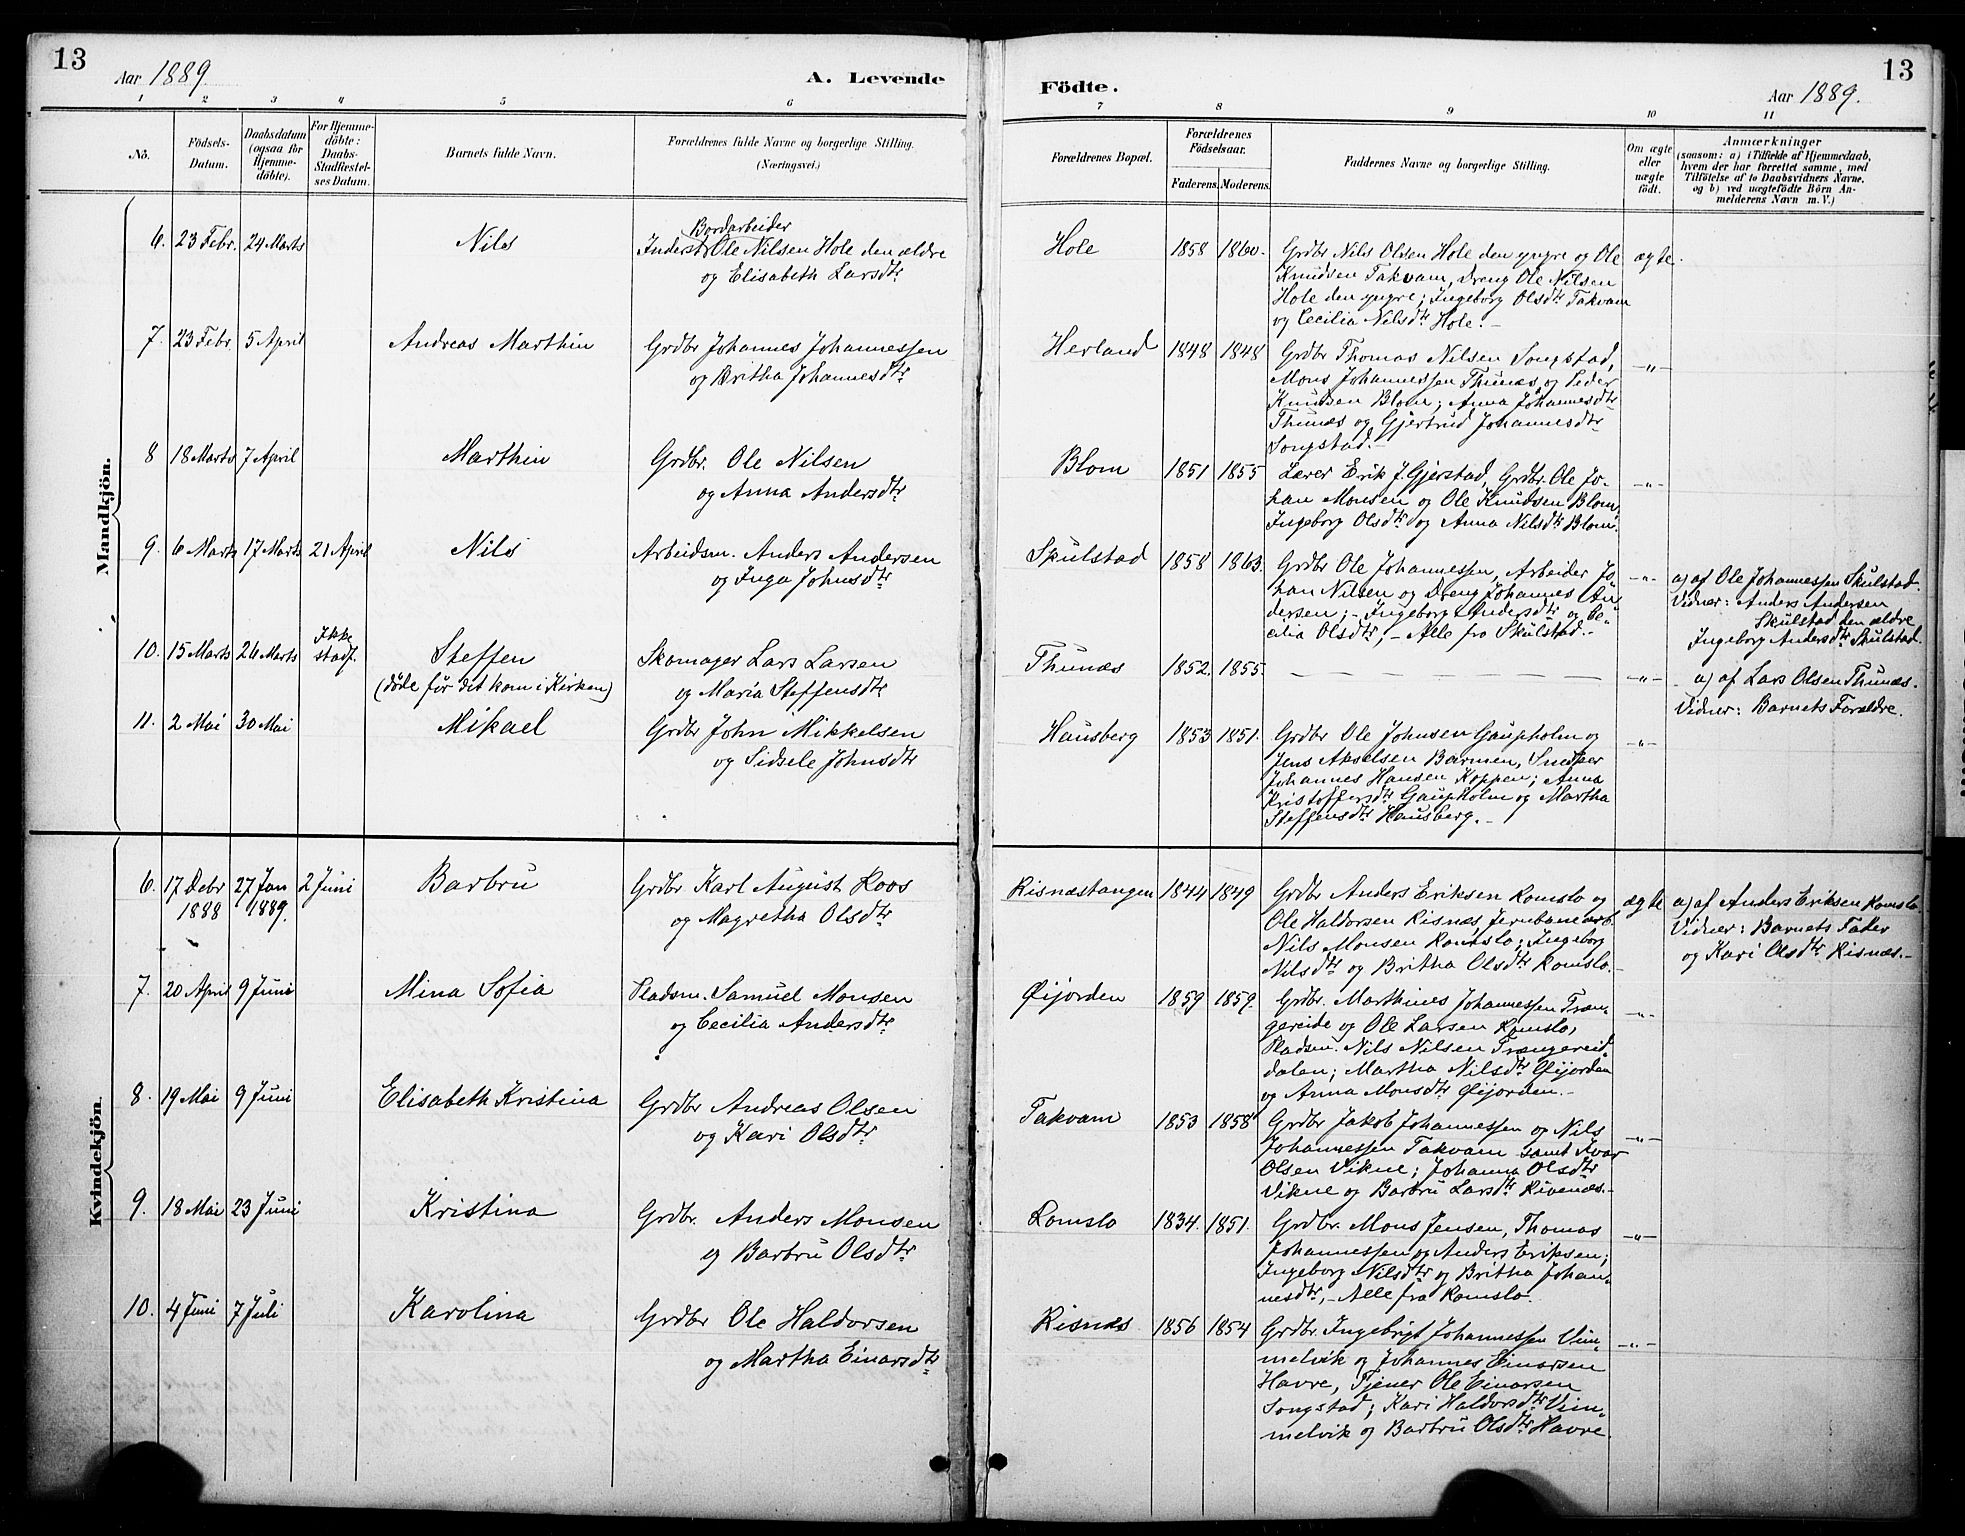 13
Aar 1889.
A. Levende
1 2 3 4 5 6
Nô. Födsels-Datum. Daabsdatum (ogsaa for Hjemme-döbte). For Hjemme-döbte: Daabs-Stadfæstel-ses Datum. Barnets fulde Navn. Forældrenes fulde Navne og borgerlige Stilling. (Næringsvei.)
Mandkjön.
6. 23 Febr. 24 Marts Nils Bordarbeider
Inderst Ole Nilsen Hole den ældre
og Elisabeth Larsdtr
7. 23 Febr. 5 April Andreas Marthin Grdbr Johannes Johannessen
og Britha Johannesdtr
8 18 Marts 7 April Marthin Grdbr. Ole Nilsen
og Anna Andersdtr
9. 6 Marts 17 Marts 21 April Nils Arbeidsm. Anders Andersen
og Inga Johnsdtr
10. 15 Marts 26 Marts Ikke stadf. Steffen Skomager Lars Larsen
(døde før det kom i Kirken) og Maria Steffensdtr
11. 2 Mai 30 Mai Mikael Grdbr John Mikkelsen
og Sidsele Johnsdtr
Kvindekjön.
6. 17 Debr 27 Jan 2 Juni Barbru Grdbr Karl August Roos
1888 1889. og Magretha Olsdtr
7. 20 April 9 Juni Mina Sofia Pladsm. Samuel Monsen
og Cecilia Andersdtr
8. 19 Mai 9 Juni Elisabeth Kristina Grdbr Andreas Olsen
og Kari Olsdtr
9. 18 Mai 23 Juni Kristina Grdbr. Anders Monsen
og Barbru Olsdtr
10. 4 Juni 7 Juli Karolina Grdbr Ole Haldorsen
og Martha Einarsdtr
13
Födte.
Aar 1889.
7 8 9 10 11
Forældrenes Bopæl. Forældrenes Födselsaar. Faderens. Moderens. Faddernes Navne og borgerlige Stilling. Om ægte eller uægte födt. Anmærkninger
(saasom: a) i Tilfælde af Hjemmedaab,
hvem der har forrettet samme, med
Tilföielse af to Daabsvidners Navne,
og b) ved uægtefödte Börn An-
melderens Navn m. V.)
Hole 1858 1860. Grdbr Nils Olsen Hole den yngre og Ole ægte.
Knudsen Takvam, Dreng Ole Nilsen
Hole den yngre; Ingeborg Olsdtr Takvam
og Cecilia Nilsdtr Hole.-
Herland 1848 1848 Grdbr Thomas Nilsen Songstad, -"-
Mons Johannessen Thunæs og Peder
Knudsen Blom; Anna Johannesdtr
Thunæs og Gjertrud Johannesdtr
Songstad.-
Blom 1851 1855 Lærer Erik J. Gjerstad, Grdbr. Ole Jo- -"-
han Monsen og Ole Knudsen Blom,
Ingeborg Olsdtr og Anna Nilsdtr Blom.
Skulstad 1858 1863. Grdbr Ole Johannessen, Arbeider Jo- -"- a) af Ole Johannessen Skulstad.
han Nilsen og Dreng Johannes An- Vidner: Anders Andersen
dersen; - Ingeborg Andersdtr og Ce- Skulstad den ældre
cilia Olsdtr, - Alle fra Skulstad.- Ingeborg Andersdtr Skulstad.
Thunæs 1852. 1855. -"- a) af Lars Olsen Thunæs.
Vidner: Barnets Forældre.
Hausberg 1853 1851. Grdbr Ole Johnsen Gaupholm og -"-
Jens Akselsen Barmen, Snedker
Johannes Hansen Koppen; Anna
Kristoffersdtr Gaupholm og Martha
Steffensdtr Hausberg.-
Risnæstangen 1844 1849 Grdbr Anders Eriksen Romslo og ægte a) af Anders Eriksen Romslo.
Ole Haldorsen Risnæs, Jernbanearb. Vidner: Barnets Fader
Nils Monsen Romslo; Ingeborg og Kari Olsdtr Risnæs.-
Nilsdtr og Britha Olsdtr Romslo.-
Øijorden 1859 1859. Grdbr. Marthines Johannessen Træn- -"-
gereide og Ole Larsen Romslo,
Pladsm. Nils Nilsen Trængereid
dalen; Martha Nilsdtr Øijorden
og Anna Monsdtr Øijorden.-
Takvam 1853 1858 Grdbr Jakob Johannessen og Nils -"-
Johannessen Takvam samt Ivar
Olsen Vikne; Johanna Olsdtr
Vikne og Barbru Larsdtr Rivenæs.-
Romslo 1834. 1851. Grdbr. Mons Jensen, Thomas -"-
Johannessen og Anders Eriksen;
Ingeborg Nilsdtr og Britha Johan-
nesdtr, - Alle fra Romslo.
Risnæs 1856 1854 Grdbr. Ingebrigt Johannessen Vim- -"-
melvik og Johannes Einarsen
Havre, Tjener Ole Einarsen
Songstad; Kari Haldorsdtr Vim-
melvik og Barbru Olsdtr Havre.